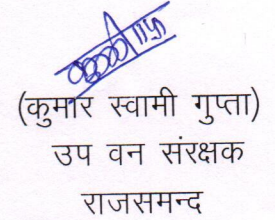 (कुमार स्वामी गुप्ता)
उप वन संरक्षक
राजसमन्द